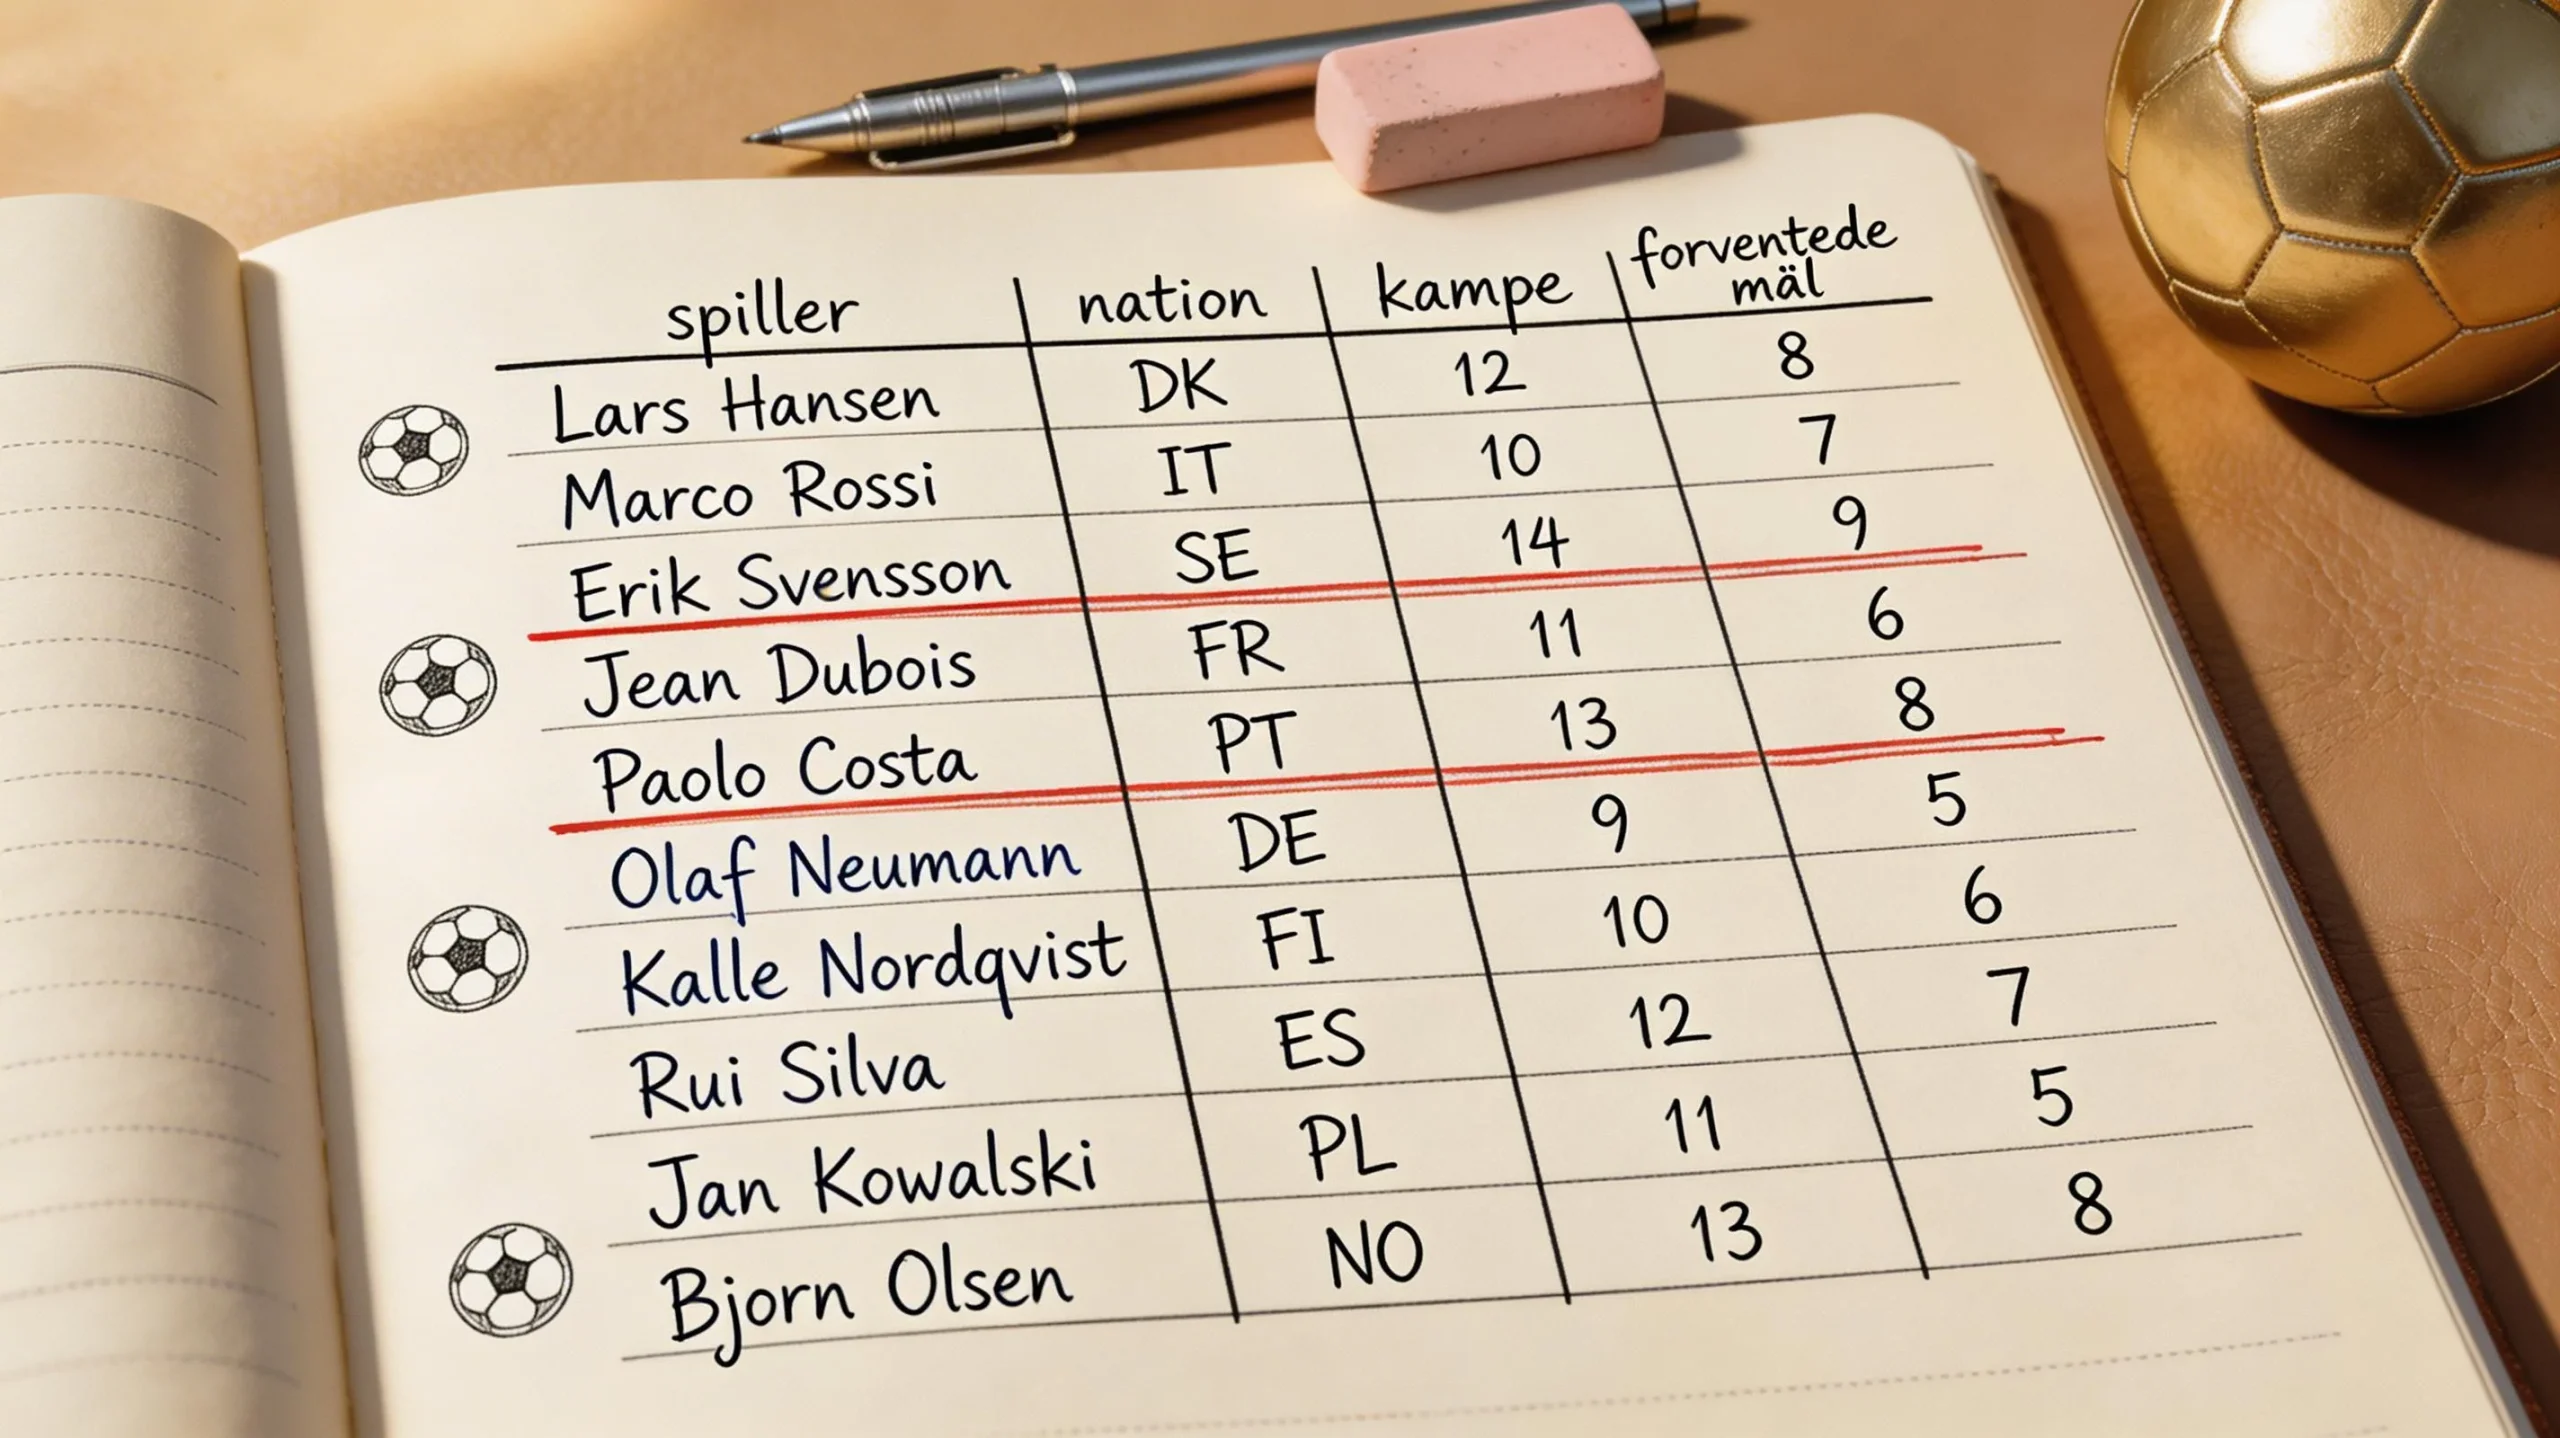 spiller nation kampe forventede mäl
Lars Hansen DK 12 8
Marco Rossi IT 10 7
Erik Svensson SE 14 9
Jean Dubois FR 11 6
Paolo Costa PT 13 8
Olaf Neumann DE 9 5
Kalle Nordqvist FI 10 6
Rui Silva ES 12 7
Jan Kowalski PL 11 5
Bjorn Olsen NO 13 8